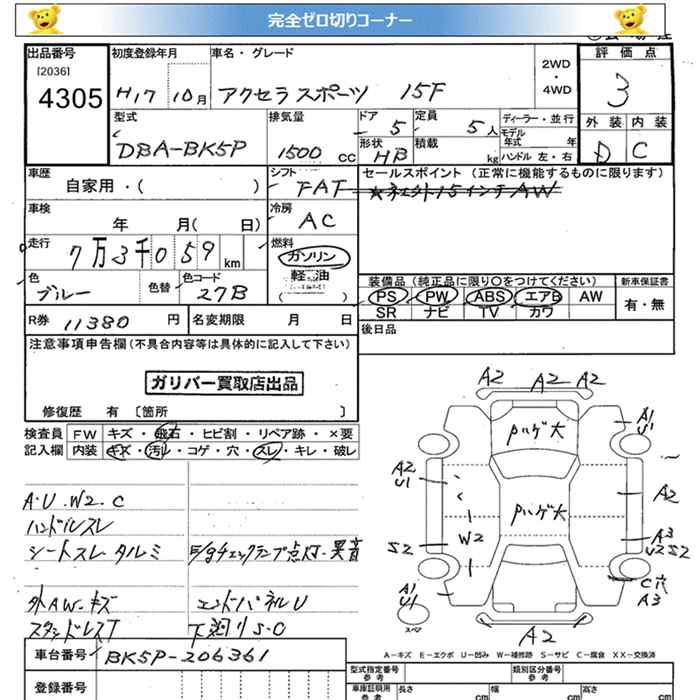 完全ゼロ切りコーナー
出品番号 初度登録年月 車名・グレード 評価点
[2036]
4305 H17 10月 アクセラスポーツ 15F 2WD・4WD 3
型式 排気量 ドア 定員 ディーラー・並行 外装 内装
DBA-BK5P 1500 CC 5 5人 モデル年式 年 D C
形状 HB 積載 kg ハンドル 左・右
車歴 シフト セールスポイント (正常に機能するものに限ります)
自家用・( ) FAT
車検 冷房
年 月( 日) AC
走行 燃料
7万3千059 km ガソリン
軽油
色 色替 色コード 装備品 (純正品に限り○をつけてください) 新車保証書
ブルー 27B ( ) PS PW ABS エアB AW 有・無
SR ナビ TV カワ
R券 11380 円 名変期限 月 日 後日品
注意事項申告欄(不具合内容等は具体的に記入して下さい)
ガリバー買取店出品
修復歴 有 〔箇所 〕
検査員 FW キズ・飛石・ヒビ割・リペア跡・×要
記入欄 内装 キズ・汚レ・コゲ・穴・スレ・キレ・破レ
A2 A2 A2
Pハゲ大
A1
U1
A2
U1
A2
Pハゲ大
W2
A3
U2 S2
S2
A1
U1
C穴
A3
スペア
A2
A・U・W2・C
ハンドルスレ
シートスレ タルミ E/gチェックランプ点灯・異音
外AW・キズ エンドパネルU
スタッドレスT 下廻りS・C
A-キズ E-エクボ U-凹み W-補修跡 S-サビ C-腐食 XX-交換済
車台番号 BK5P-206361
登録番号
型式指定番号 参考 類別区分番号 参考
車庫証明用 参考 長さ cm 幅 cm 高さ cm